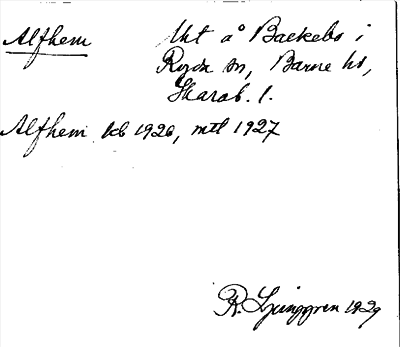 Alfhem Uht å Backebo i
Ryda sn, Barne hd,
Skarab. l.
Alfhem kb 1926, mtl 1927
R. Ljunggren 1929